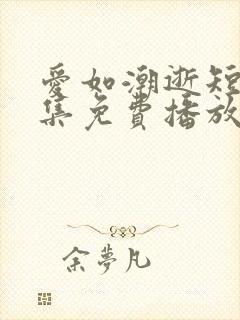 愛如潮逝短
集免費播放
余夢凡